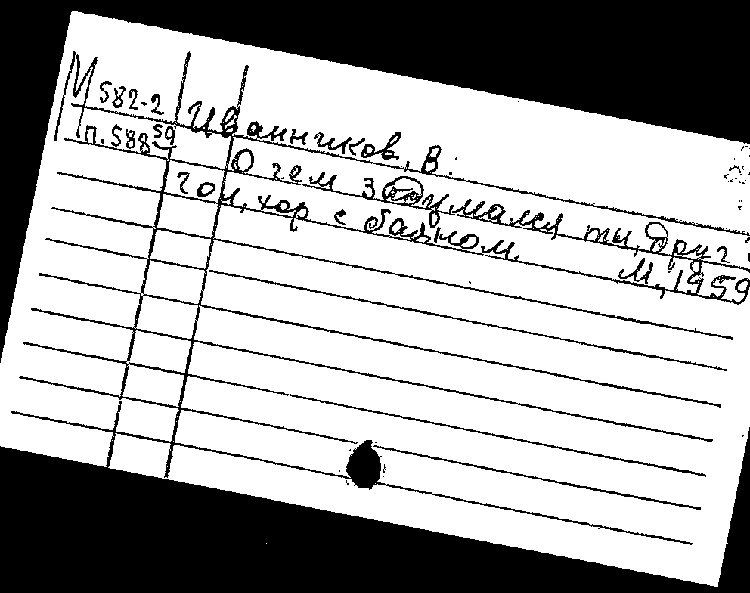 М 582-2
п. 588 59
Иванников, В.
О чем задумался ты, друг?
гол., хор с баяном.
М., 1959